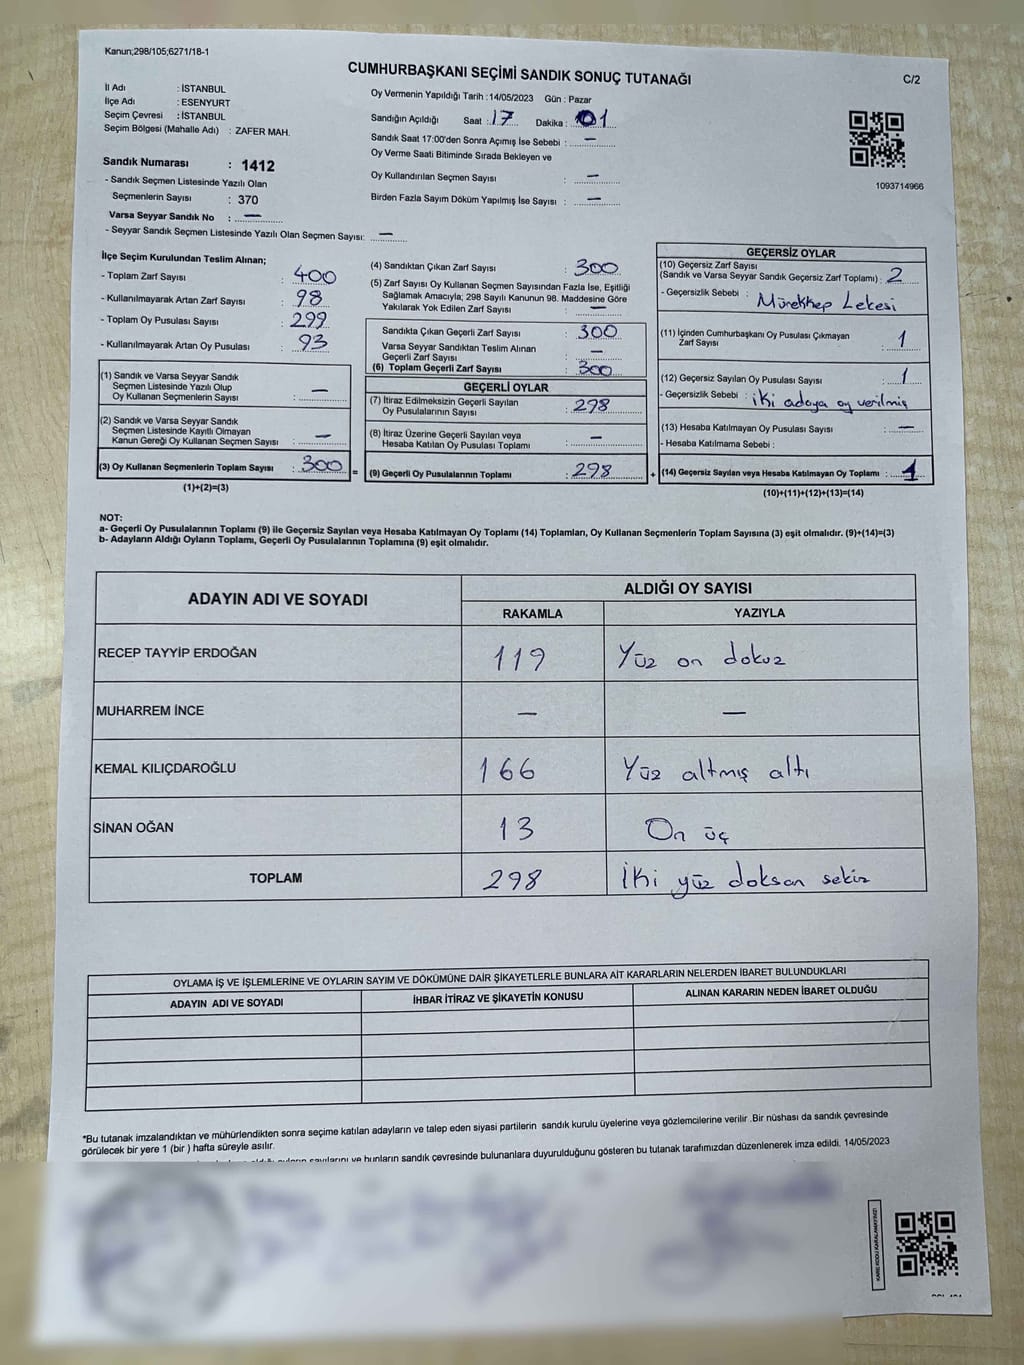 Kanun;298/105;6271/18-1
CUMHURBAŞKANI SEÇİMİ SANDIK SONUÇ TUTANAĞI
C/2
İl Adı : İSTANBUL
İlçe Adı : ESENYURT
Seçim Çevresi : İSTANBUL
Seçim Bölgesi (Mahalle Adı) : ZAFER MAH.
Sandık Numarası : 1412
- Sandık Seçmen Listesinde Yazılı Olan
Seçmenlerin Sayısı : 370
Varsa Seyyar Sandık No : —
- Seyyar Sandık Seçmen Listesinde Yazılı Olan Seçmen Sayısı: —
Oy Vermenin Yapıldığı Tarih : 14/05/2023 Gün : Pazar
Sandığın Açıldığı Saat : 17 Dakika : 01
Sandık Saat 17:00'den Sonra Açımış İse Sebebi : —
Oy Verme Saati Bitiminde Sırada Bekleyen ve
Oy Kullandırılan Seçmen Sayısı : —
Birden Fazla Sayım Döküm Yapılmış İse Sayısı : —
1093714966
İlçe Seçim Kurulundan Teslim Alınan;
- Toplam Zarf Sayısı : 400
- Kullanılmayarak Artan Zarf Sayısı : 98
- Toplam Oy Pusulası Sayısı : 299
- Kullanılmayarak Artan Oy Pusulası : 93
(1) Sandık ve Varsa Seyyar Sandık
Seçmen Listesinde Yazılı Olup
Oy Kullanan Seçmenlerin Sayısı : —
(2) Sandık ve Varsa Seyyar Sandık
Seçmen Listesinde Kayıtlı Olmayan
Kanun Gereği Oy Kullanan Seçmen Sayısı : —
(3) Oy Kullanan Seçmenlerin Toplam Sayısı : 300 =
(1)+(2)=(3)
(4) Sandıktan Çıkan Zarf Sayısı : 300
(5) Zarf Sayısı Oy Kullanan Seçmen Sayısından Fazla İse, Eşitliği
Sağlamak Amacıyla; 298 Sayılı Kanunun 98. Maddesine Göre
Yakılarak Yok Edilen Zarf Sayısı : —
Sandıkta Çıkan Geçerli Zarf Sayısı : 300
Varsa Seyyar Sandıktan Teslim Alınan
Geçerli Zarf Sayısı : —
(6) Toplam Geçerli Zarf Sayısı : 300
GEÇERLİ OYLAR
(7) İtiraz Edilmeksizin Geçerli Sayılan
Oy Pusulalarının Sayısı : 298
(8) İtiraz Üzerine Geçerli Sayılan veya
Hesaba Katılan Oy Pusulası Toplamı : —
(9) Geçerli Oy Pusulalarının Toplamı : 298 +
GEÇERSİZ OYLAR
(10) Geçersiz Zarf Sayısı
(Sandık ve Varsa Seyyar Sandık Geçersiz Zarf Toplamı) : 2
- Geçersizlik Sebebi : Mürekkep Lekesi
(11) İçinden Cumhurbaşkanı Oy Pusulası Çıkmayan
Zarf Sayısı : 1
(12) Geçersiz Sayılan Oy Pusulası Sayısı : 1
- Geçersizlik Sebebi : iki adaya oy verilmiş
(13) Hesaba Katılmayan Oy Pusulası Sayısı : —
- Hesaba Katılmama Sebebi :
(14) Geçersiz Sayılan veya Hesaba Katılmayan Oy Toplamı : 1
(10)+(11)+(12)+(13)=(14)
NOT:
a- Geçerli Oy Pusulalarının Toplamı (9) ile Geçersiz Sayılan veya Hesaba Katılmayan Oy Toplamı (14) Toplamları, Oy Kullanan Seçmenlerin Toplam Sayısına (3) eşit olmalıdır. (9)+(14)=(3)
b- Adayların Aldığı Oyların Toplamı, Geçerli Oy Pusulalarının Toplamına (9) eşit olmalıdır.
ADAYIN ADI VE SOYADI
ALDIĞI OY SAYISI
RAKAMLA YAZIYLA
RECEP TAYYİP ERDOĞAN 119 Yüz on dokuz
MUHARREM İNCE — —
KEMAL KILIÇDAROĞLU 166 Yüz altmış altı
SİNAN OĞAN 13 On üç
TOPLAM 298 İki yüz doksan sekiz
OYLAMA İŞ VE İŞLEMLERİNE VE OYLARIN SAYIM VE DÖKÜMÜNE DAİR ŞİKAYETLERLE BUNLARA AİT KARARLARIN NELERDEN İBARET BULUNDUKLARI
ADAYIN ADI VE SOYADI İHBAR İTİRAZ VE ŞİKAYETİN KONUSU ALINAN KARARIN NEDEN İBARET OLDUĞU
*Bu tutanak imzalandıktan ve mühürlendikten sonra seçime katılan adayların ve talep eden siyasi partilerin sandık kurulu üyelerine veya gözlemcilerine verilir .Bir nüshası da sandık çevresinde
görülecek bir yere 1 (bir ) hafta süreyle asılır.
sayılarını ve bunların sandık çevresinde bulunanlara duyurulduğunu gösteren bu tutanak tarafımızdan düzenlenerek imza edildi. 14/05/2023
KARE KODU KARALAMAYINIZ!